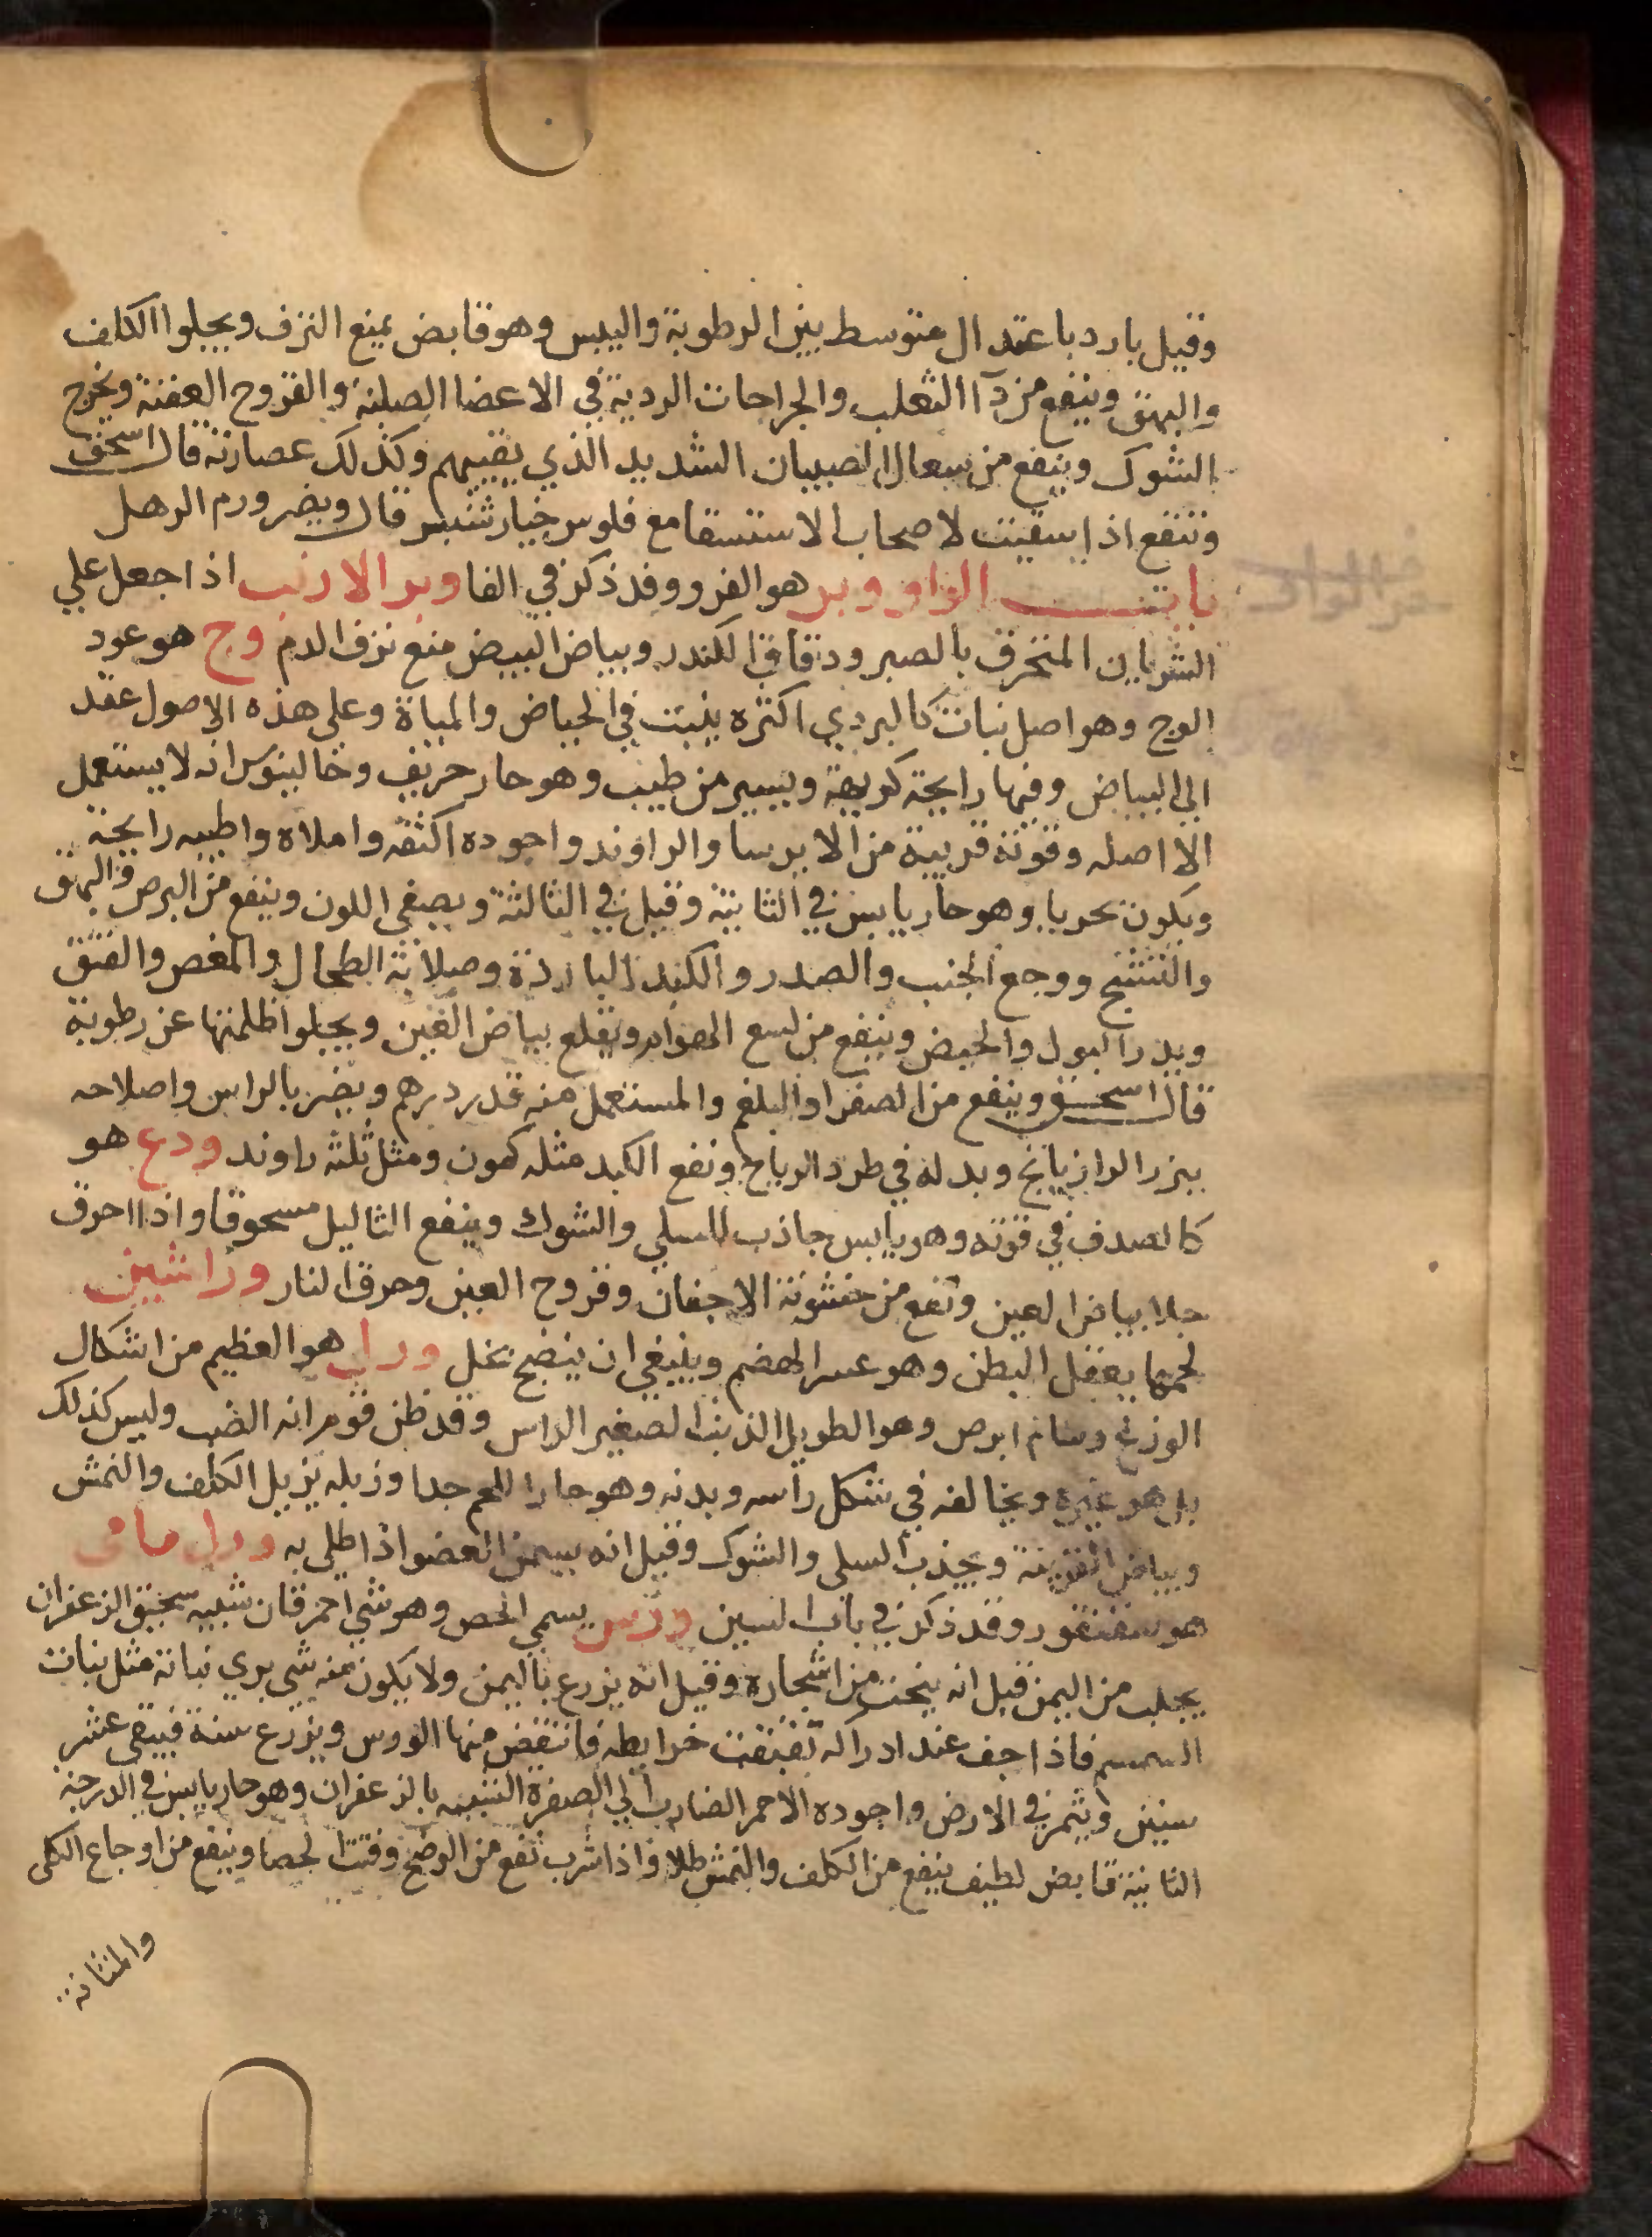 وقيل بارد باعتدال متوسط بين الرطوبة واليبس وهو قابض يمنع النزف ويجلوا الكلف
والبهق وينفع من دآ الثعلب والجراحات الردية في الاعضا الصلبة والقروح العفنة ويخرج
الشوك وينفع من سعال الصبيان الشديد الذي يقييهم وكذلك عصارته قال اسحق
وتنفع اذا سقيت لاصحاب الاستسقا مع فلوس خيار شنبر قال ويضر ورم الرهل
باب الواو وبر هو الفرو وقد ذكر في الفا وبر الارنب اذا جعل علي
الشريان المنخرق بالصبر ودقاق الكندر وبياض البيض منع نزف الدم وج هو عود
الوج وهو اصل نبات كالبردي اكثره ينبت في الحياض والمياة وعلى هذه الاصول عقد
الي البياض وفيها رايحة كريهة ويسير من طيب وهو حار حريف وجالينوس انه لا يستعمل
الا اصله وقوته قريبة من الايرسا والراوند واجوده اكثفه واملاه واطيبه رايحة
ويكون بحريا وهو حار يابس في الثانية وقيل في الثالثة ويصفي اللون وينفع من البرص والبهق
والتشنج ووجع الجنب والصدر والكبد الباردة وصلابة الطحال والمغص والفتق
ويدر البول والحيض وينفع من لسع الهوام ويقلع بياض العين ويجلوا ظلمتها عن رطوبة
قال اسحق وينفع من الصفرا والبلغم والمستعمل منه قدر درهم ويضر بالراس واصلاحه
ببزر الرازيانج وبدله في طرد الرياح ونفع الكبد مثله كمون ومثل ثلثه راوند ودع هو
كالصدف في قوته وهو يابس جاذب للسلي والشوك وينفع الثاليل مسحوقا واذا احرق
جلا بياض العين ونفع من خشونة الاجفان وقروح العين وحرق النار وراشين
لحمها يعقل البطن وهو عسر الهضم وينبغي ان ينضج بخل ورل هو العظيم من اشكال
الوزغ وسام ابرص وهو الطويل الذنب الصغير الراس وقد ظن قوم انه الضب وليس كذلك
بل هو غيره ويخالفه في شكل راسه وبدنه وهو حار اللحم جدا وزبله يزيل الكلف والنمش
وبياض القرنية ويجذب السلى والشوك وقيل انه يسمن العضو اذا طلي به ورل مائي
هو سقنقور وقد ذكر في باب السين ورس يسمي الحص وهو شي احمر قان شبيه سحيق الزعفران
يجلب من اليمن قيل انه ينحت من اشجاره وقيل انه يزرع باليمن ولا يكون منه شي بري نباته مثل نبات
السمسم فاذا جف عند ادراكه تفتقت خرايطه فانتفض منها الورس ويزرع سنة فيبقى عشر
سنين ويثمر في الارض واجوده الاحمر الضارب الي الصفرة الشبيه بالزعفران وهو حار يابس في الدرجة
الثانية قابض لطيف ينفع من الكلف والنمش طلا واذا شرب نفع من الوضح وفتت الحصا وينفع من اوجاع الكلى
والمثانة